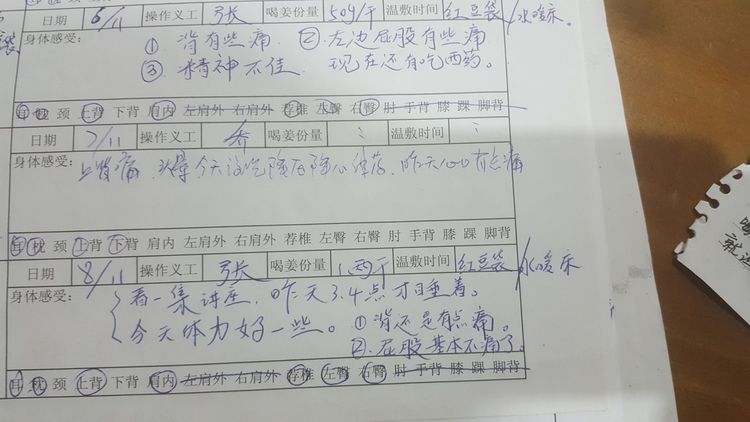 日期 6/11 操作义工 张 喝姜份量 50g/千 温敷时间 红豆袋/水暖床。
身体感受: ① 背有些痛 ② 左边屁股有些痛
③ 精神不佳 现在还有吃西药。
耳 枕 颈 上背 下背 肩内 左肩外 右肩外 荐椎 左臀 右臀 肘 手背 膝 踝 脚背
日期 7/11 操作义工 喝姜份量 温敷时间
身体感受: 上背痛 今天 吃降压降心 药, 昨天 有点痛
耳 枕 颈 上背 下背 肩内 左肩外 右肩外 荐椎 左臀 右臀 肘 手背 膝 踝 脚背
日期 8/11 操作义工 张 喝姜份量 温敷时间 红豆袋/水暖床
身体感受: 看一集讲座, 昨天3.4点才睡着。
今天体力好一些。 ① 背还是有点痛。
② 屁股基本不痛了。
耳 枕 颈 上背 下背 肩内 左肩外 右肩外 荐椎 左臀 右臀 肘 手背 膝 踝 脚背